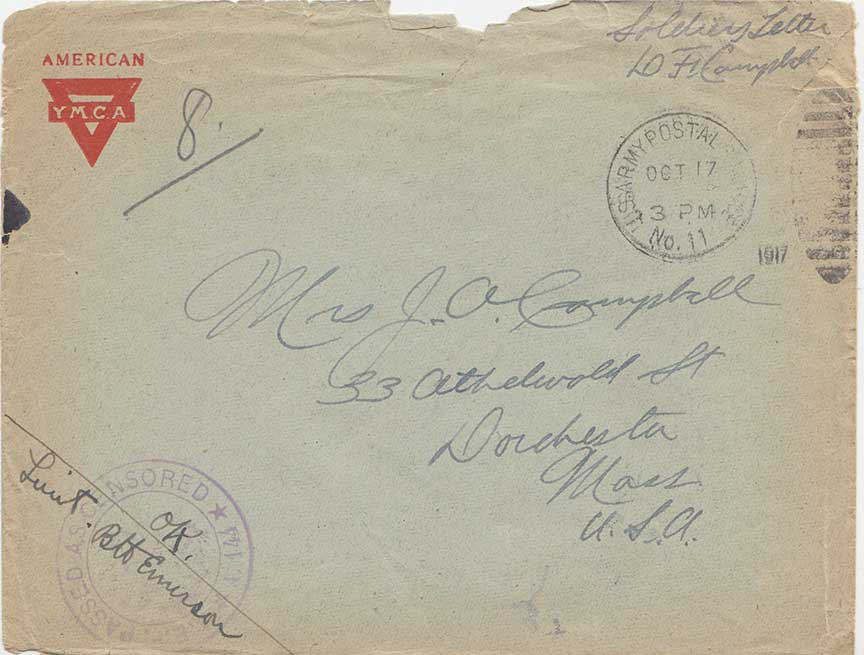 Soldiers Letter
D F Campbell
AMERICAN
YMCA
8.
U.S. ARMY POSTAL
OCT 17
3 PM
No. 11
1917
Mrs J. A. Campbell
33 Athelwold St
Dorchester
Mass
U.S.A.
PASSED AS CENSORED ★
OK.
Lieut. B H Emerson